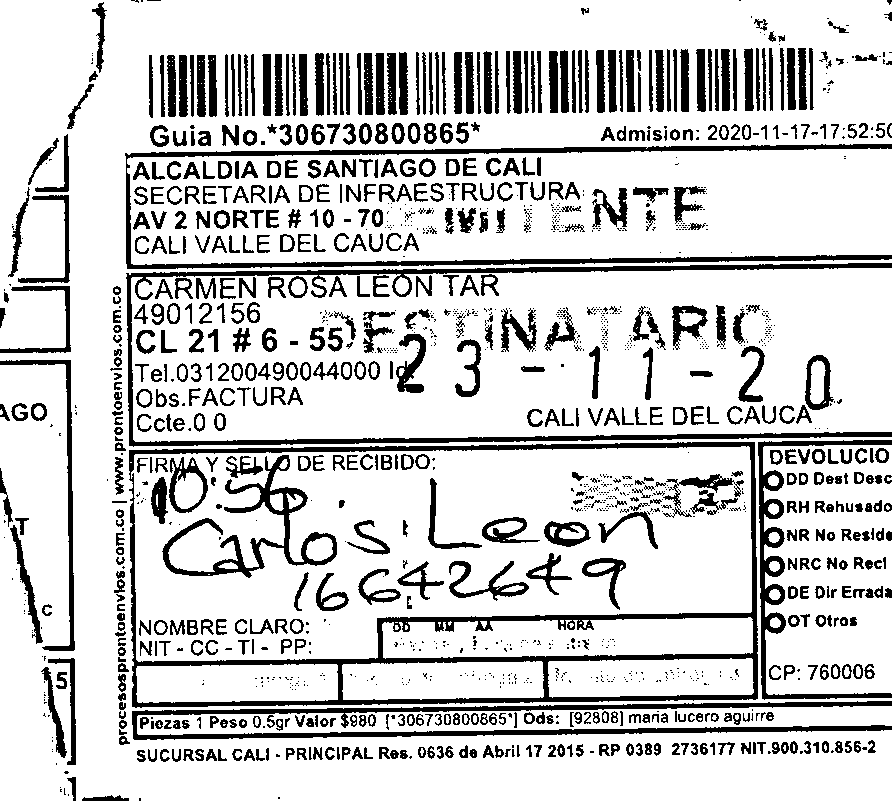 Guia No.*306730800865*
Admision: 2020-11-17-17:52:50
ALCALDIA DE SANTIAGO DE CALI
SECRETARIA DE INFRAESTRUCTURA
AV 2 NORTE # 10 - 70
CALI VALLE DEL CAUCA
CARMEN ROSA LEON TAR
49012156
CL 21 # 6 - 55
DESTINATARIO
Tel.031200490044000 Id.
23-11-20
Obs.FACTURA
Ccte.0 0
CALI VALLE DEL CAUCA
FIRMA Y SELLO DE RECIBIDO:
10:56
Carlos Leon
16642649
NOMBRE CLARO:
NIT - CC - TI - PP:
DD MM AA HORA
DEVOLUCIO
DD Dest Desc
RH Rehusado
NR No Reside
NRC No Recl
DE Dir Errada
OT Otros
CP: 760006
Piezas 1 Peso 0.5gr Valor $980 [*306730800865*] Ods: [92808] maria lucero aguirre
SUCURSAL CALI - PRINCIPAL Res. 0636 de Abril 17 2015 - RP 0389 2736177 NIT.900.310.856-2
procesosprontoenvios.com.co | www.prontoenvios.com.co
AGO
T
C
5